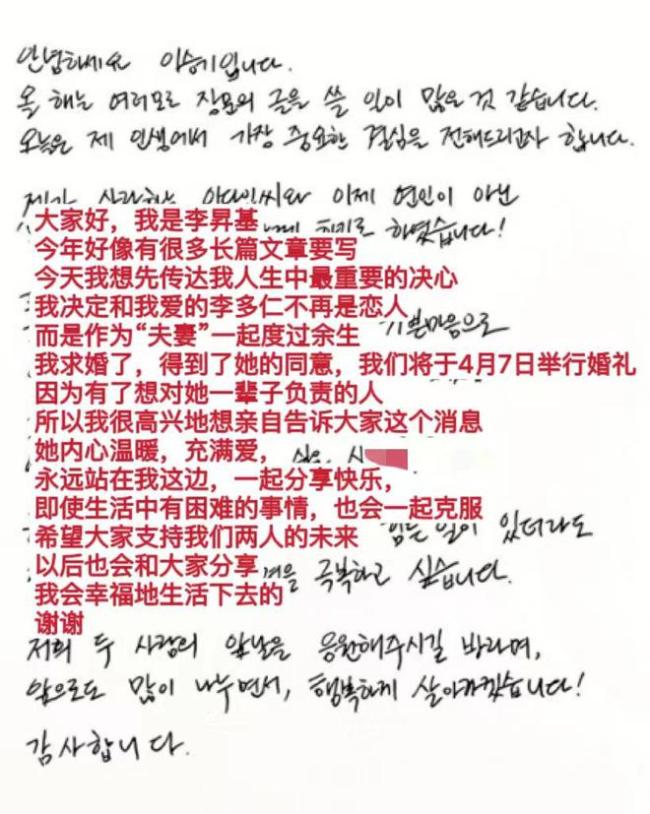 안녕하세요 이승기입니다.
올 해는 여러모로 장문의 글을 쓸 일이 많은 것 같습니다.
오늘은 제 인생에서 가장 중요한 결심을 전해드리고자 합니다.
제가 사랑하는 이다인씨와 이제 연인이 아닌
大家好，我是李昇基
하였습니다!
今年好像有很多长篇文章要写
今天我想先传达我人生中最重要的决心
我决定和我爱的李多仁不再是恋人
而是作为“夫妻”一起度过余生
기쁜마음으로
我求婚了，得到了她的同意，我们将于4月7日举行婚礼
因为有了想对她一辈子负责的人
所以我很高兴地想亲自告诉大家这个消息
她内心温暖，充满爱，
永远站在我这边，一起分享快乐，
即使生活中有困难的事情，也会一起克服
힘든 일이 있더라도
希望大家支持我们两人的未来
以后也会和大家分享
극복하고 싶습니다.
我会幸福地生活下去的
谢谢
저희 두 사람의 앞날을 응원해주시길 바라며,
앞으로도 많이 나누면서, 행복하게 살아가겠습니다!
감사합니다.